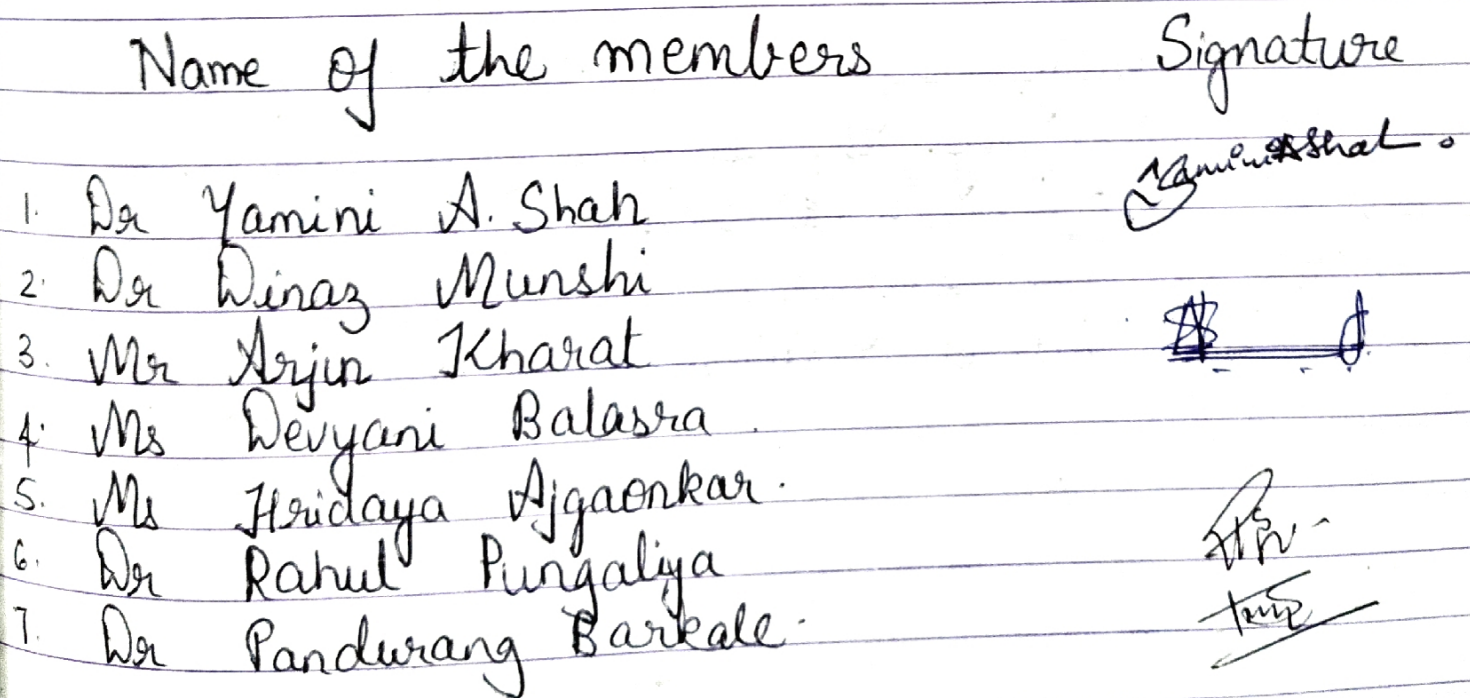 Name of the members Signature
1. Dr Yamini A. Shah Yamini A Shah.
2. Dr Dinaz Munshi
3. Mr Arjun Kharat
4. Ms Devyani Balasra
5. Ms Hridaya Ajgaonkar.
6. Dr Rahul Pungaliya
7. Dr Pandurang Barkale.